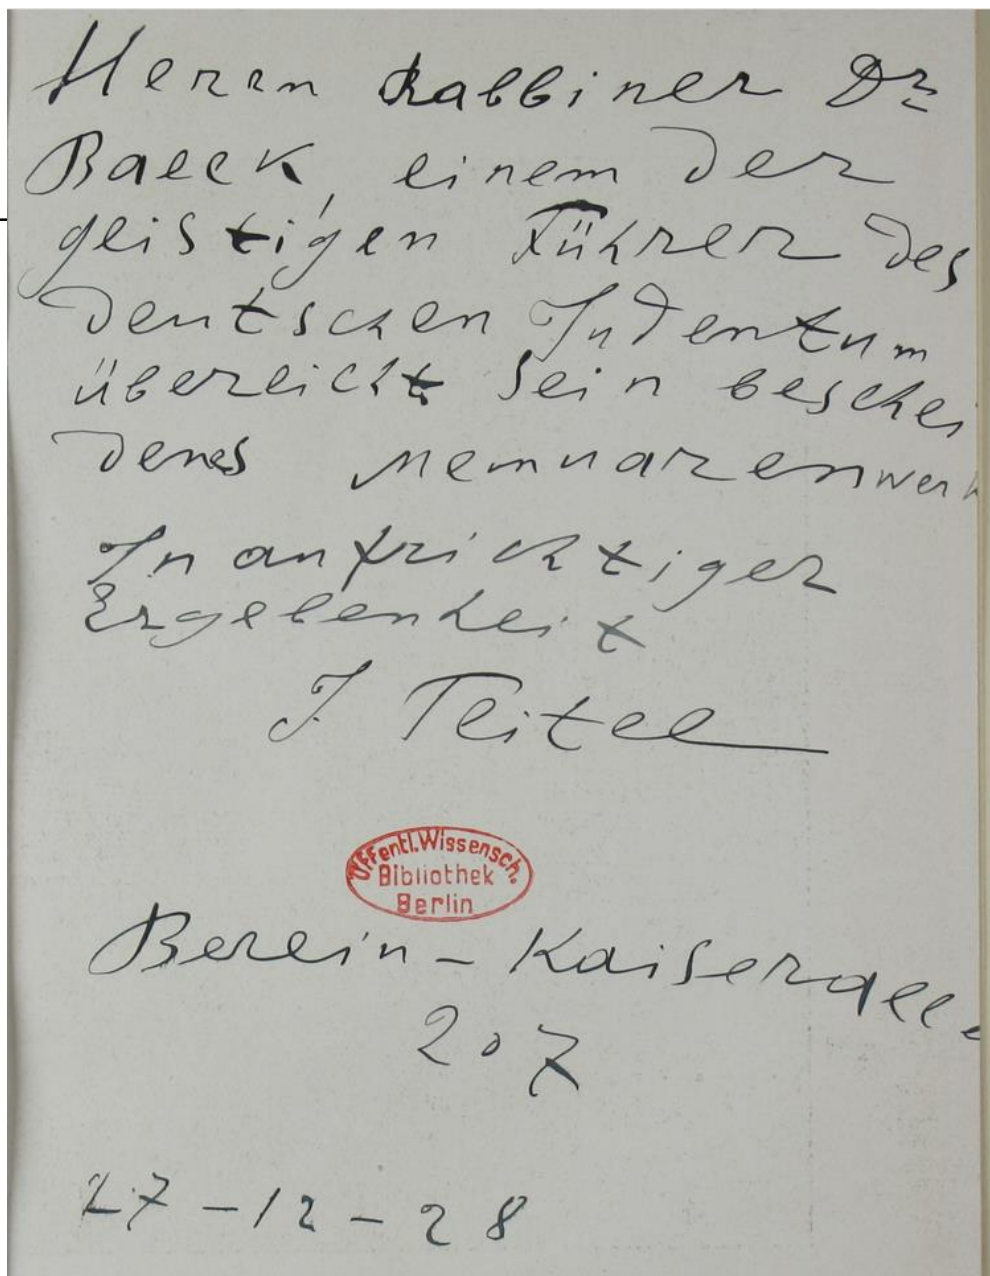 Herrn Rabbiner Dr
Baeck, einem der
geistigen Führer des
deutschen Judentum
übereicht sein beschei
denes Memuarenwerk
In aufrichtiger
Ergebenheit
J. Teitel
Öffentl. Wissensch.
Bibliothek
Berlin
Berlin - Kaiserallee
207
27-12-28